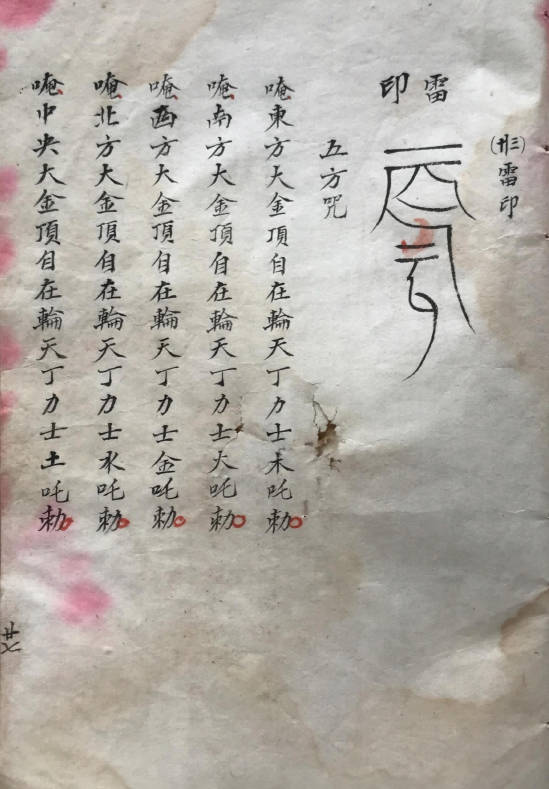 (形)雷印
雷印
五方咒
唵東方大金頂自在輪天丁力士木吒勅
唵南方大金頂自在輪天丁力士火吒勅
唵西方大金頂自在輪天丁力士金吒勅
唵北方大金頂自在輪天丁力士水吒勅
唵中央大金頂自在輪天丁力士土吒勅